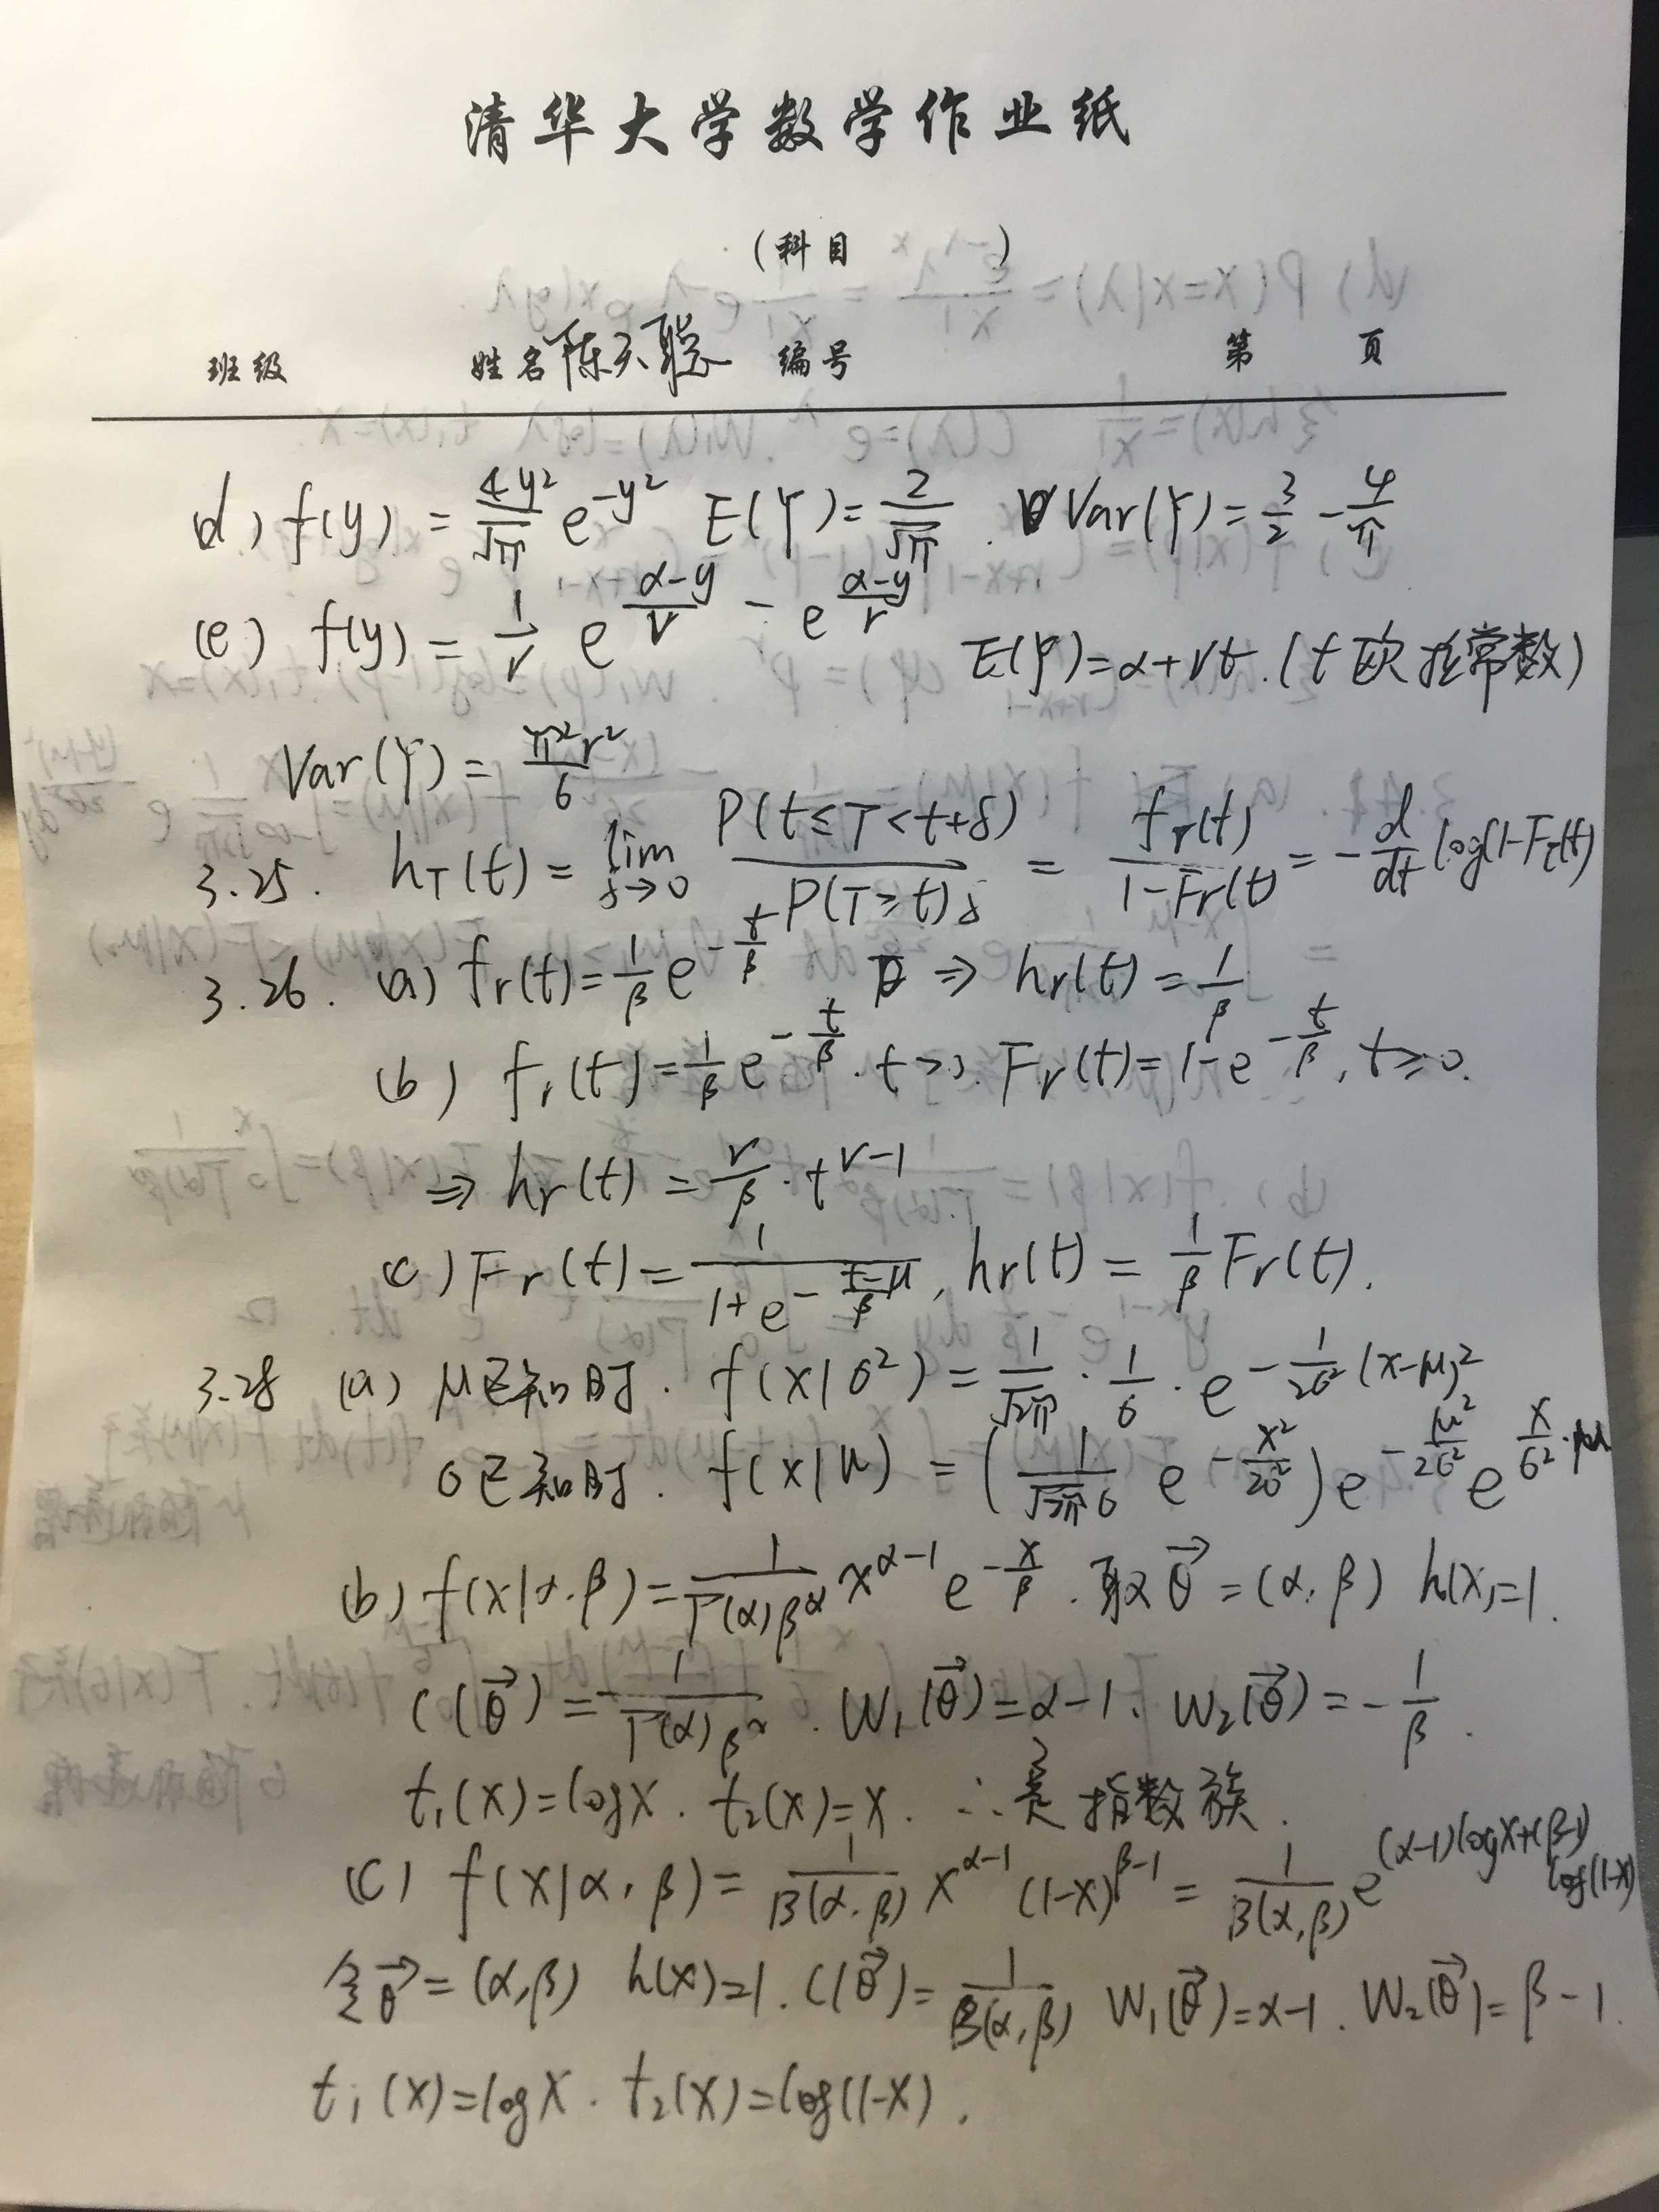 清华大学数学作业纸
(科目 )
班级 姓名 陈天聪 编号 第 页
d) f(y) = \frac{4y²}{\sqrt{π}} e^{-y²} E(Y) = \frac{2}{\sqrt{π}} . Var(Y) = \frac{3}{2} - \frac{4}{π}
(e) f(y) = \frac{1}{r} e^{\frac{α-y}{r}} - e^{\frac{α-y}{r}} E(Y) = α + rt . (t 欧拉常数)
Var(Y) = \frac{π²r²}{6}
3.25. h_T(t) = \lim_{δ→0} \frac{P(t≤T<t+δ)}{P(T≥t)δ} = \frac{f_T(t)}{1-F_T(t)} = -\frac{d}{dt} log(1-F_T(t))
3.26. (a) f_T(t) = \frac{1}{β} e^{-\frac{t}{β}} ⇒ h_T(t) = \frac{1}{β}
(b) f_T(t) = \frac{1}{β} e^{-\frac{t}{β}} . t>0. F_T(t) = 1-e^{-\frac{t}{β}}, t≥0.
⇒ h_T(t) = \frac{r}{β} · t^{r-1}
(c) F_T(t) = \frac{1}{1+e^{-\frac{t-μ}{β}}}, h_T(t) = \frac{1}{β} F_T(t).
3.28 (a) μ已知时. f(x|σ²) = \frac{1}{\sqrt{2π}} · \frac{1}{σ} · e^{-\frac{1}{2σ²}(x-μ)²}
σ已知时. f(x|μ) = (\frac{1}{\sqrt{2π}σ} e^{-\frac{x²}{2σ²}}) e^{-\frac{μ²}{2σ²}} e^{\frac{x}{σ²}·μ}
(b) f(x|α.β) = \frac{1}{Γ(α)β^α} x^{α-1} e^{-\frac{x}{β}} . 取\vec{θ} = (α, β) h(x)=1.
C(\vec{θ}) = \frac{1}{Γ(α)β^α} . W₁(\vec{θ}) = α-1. W₂(\vec{θ}) = -\frac{1}{β} .
t₁(x) = log x . t₂(x) = x . ∴是指数族.
(c) f(x|α, β) = \frac{1}{B(α, β)} x^{α-1} (1-x)^{β-1} = \frac{1}{B(α,β)} e^{(α-1)log x+(β-1)log(1-x)}
令\vec{θ} = (α,β) h(x)=1. C(\vec{θ}) = \frac{1}{B(α,β)} W₁(\vec{θ}) = α-1. W₂(\vec{θ}) = β-1.
t₁(x) = log x . t₂(x) = log(1-x).